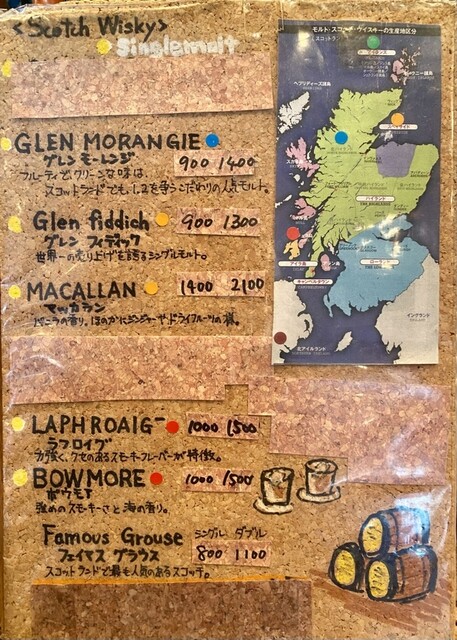 <Scotch Wisky>
Singlemalt
GLEN MORANGIE
グレン モーレンジ
900 1400
フルーティでクリーンな味は
スコットランドでも1,2を争うこだわりの人気モルト。
Glen fiddich
900 1300
グレン フィディック
世界一の売り上げを誇るシングルモルト。
MACALLAN
1400 2100
マッカラン
バニラの香り。ほのかにジンジャーやドライフルーツの様。
LAPHROAIG
1000 1500
ラフロイグ
力強く、クセのあるスモーキーフレーバーが特徴。
BOWMORE
1000 1500
ボウモア
強めのスモーキーさと海の香り。
Famous Grouse
シングル ダブル
フェイマス グラウス
800 1100
スコットランドで最も人気のあるスコッチ。
モルト・スコッチ・ウイスキーの生産地区分
ヘブリディーズ諸島
オークニー諸島
スペイサイド
ハイランド
THE HIGHLAND
ローランド
アイラ島
キャンベルタウン
イングランド
北アイルランド